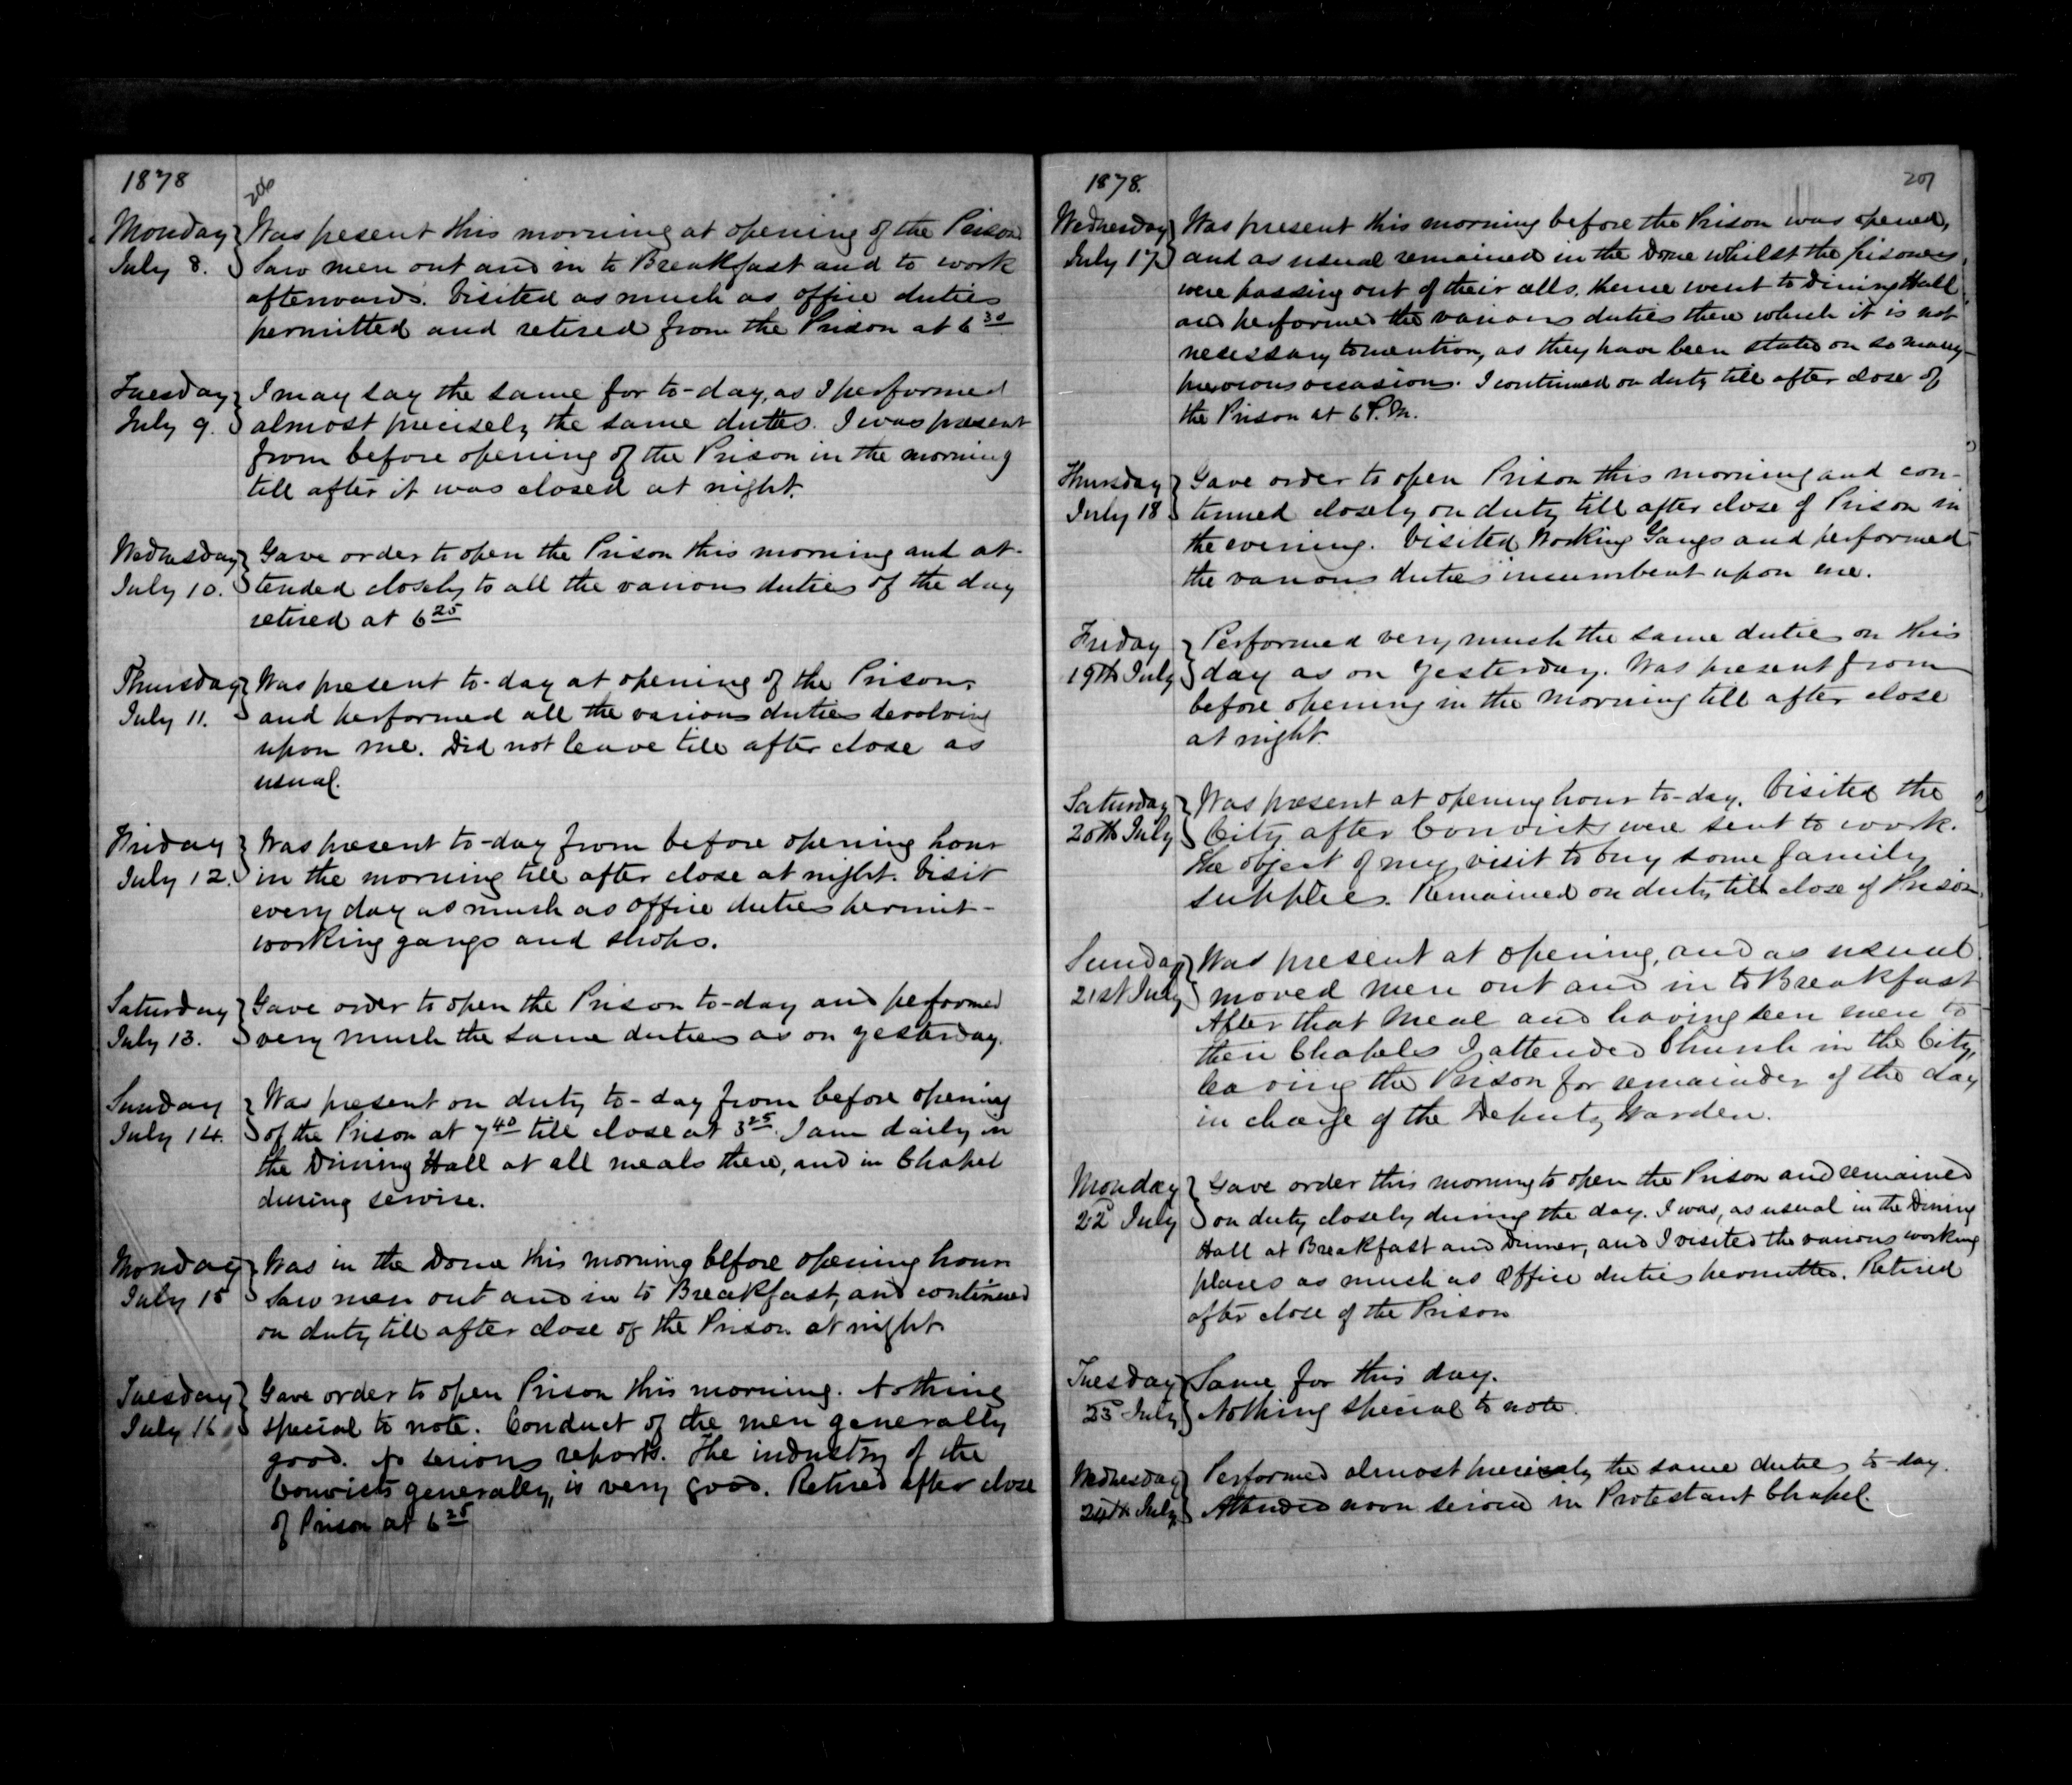 1878
206
Monday Was present this morning at opening of the Prison
July 8. Saw men out and in to Breakfast and to work
afterwards. Visited as much as office duties
permitted and retired from the Prison at 6 30
Tuesday I may say the same for to-day, as I performed
July 9. almost precisely the same duties. I was present
from before opening of the Prison in the morning
till after it was closed at night.
Wednesday Gave order to open the Prison this morning and at-
July 10. tended closely to all the various duties of the day
retired at 6 25
Thursday Was present to-day at opening of the Prison,
July 11. and performed all the various duties devolving
upon me. Did not leave till after close as
usual.
Friday Was present to-day from before opening hour
July 12. in the morning till after close at night. Visit
every day as much as office duties permit -
working gangs and shops.
Saturday Gave order to open the Prison to-day and performed
July 13. very much the same duties as on yesterday.
Sunday Was present on duty to-day from before opening
July 14. of the Prison at 7 40 till close at 3 25. I am daily in
the Dining Hall at all meals there, and in Chapel
during service.
Monday Was in the Dome this morning before opening hour
July 15 Saw men out and in to Breakfast, and continued
on duty till after close of the Prison at night
Tuesday Gave order to open Prison this morning. Nothing
July 16 special to note. Conduct of the men generally
good. No serious reports. The industry of the
Convicts generally, is very good. Retired after close
of Prison at 6 25
1878.
207
Wednesday Was present this morning before the Prison was opened,
July 17 and as usual remained in the Dome whilst the prisoners,
were passing out of their cells. thence went to Dining Hall
and performed the various duties there which it is not
necessary to mention, as they have been stated on so many
previous occasions. I continued on duty till after close of
the Prison at 6 P.M.
Thursday Gave order to open Prison this morning and con-
July 18 tinued closely on duty till after close of Prison in
the evening. Visited Working Gangs and performed
the various duties incumbent upon me.
Friday Performed very much the same duties on this
19th July day as on yesterday. Was present from
before opening in the morning till after close
at night.
Saturday Was present at opening hour to-day. Visited the
20th July City after Convicts were sent to work.
The object of my visit to buy some family
supplies. Remained on duty till close of Prison.
Sunday Was present at opening, and as usual
21st July moved men out and in to Breakfast
After that Meal and having seen men to
their Chapels I attended Church in the City,
leaving the Prison for remainder of the day
in charge of the Deputy Warden.
Monday Gave order this morning to open the Prison and remained
22d July on duty closely during the day. I was, as usual in the Dining
Hall at Breakfast and Dinner, and I visited the various working
places as much as Office duties permitted. Retired
after close of the Prison
Tuesday Same for this day.
23d July Nothing special to note.
Wednesday Performed almost precisely the same duties to-day.
24th July Attended noon service in Protestant Chapel.